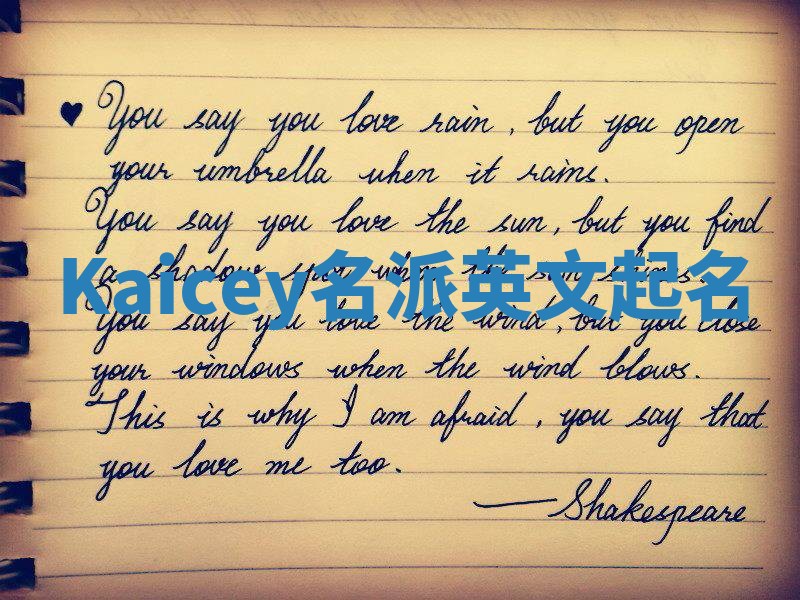 ♥ You say you love rain, but you open
your umbrella when it rains.
You say you love the sun, but you find
a shadow spot when the sun shines.
Kaicey名派英文起名
You say you love the wind, but you close
your windows when the wind blows.
This is why I am afraid, you say that
you love me too.
—Shakespeare